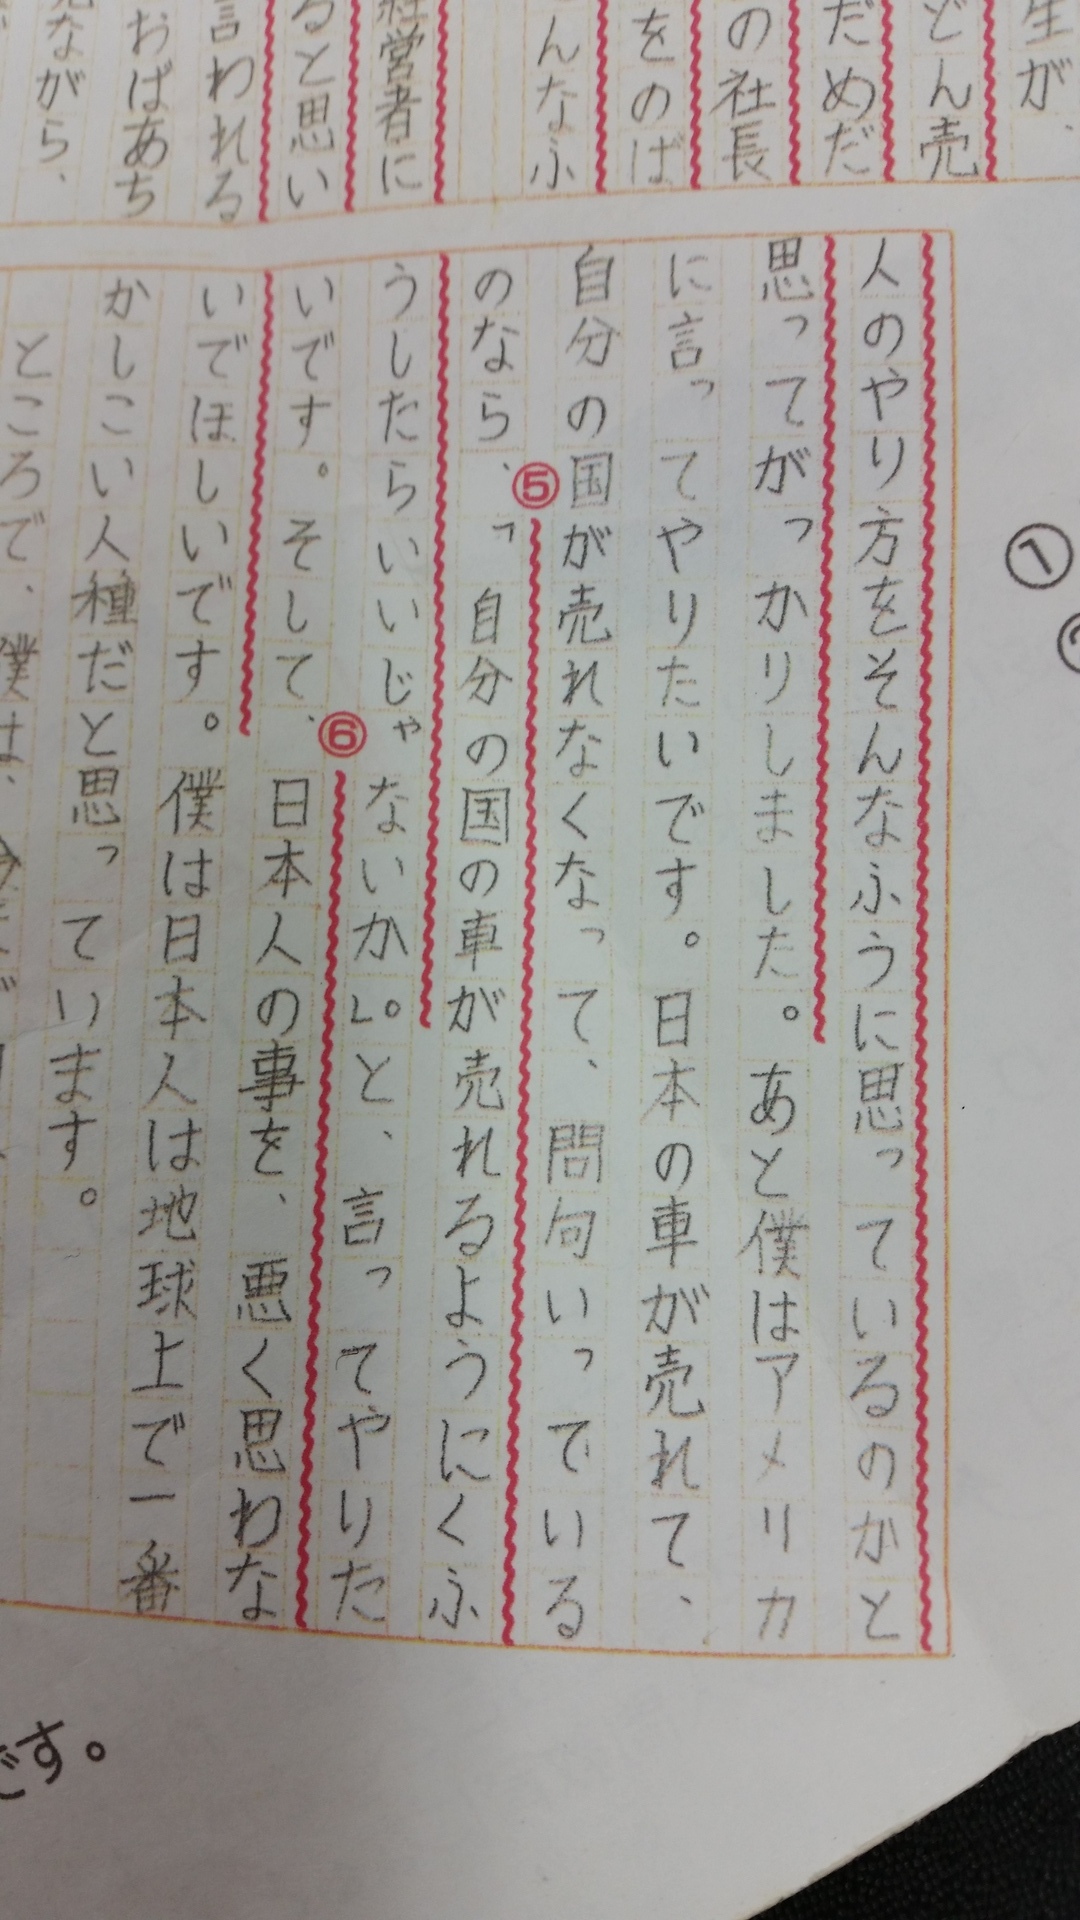 生が、
どん売
だめだ
の社長
をのば
んなふ
経営者に
ると思い
言われる
おばあち
ながら、
①
人のやり方をそんなふうに思っているのかと
思ってがっかりしました。あと僕はアメリカ
に言ってやりたいです。日本の車が売れて、
自分の国が売れなくなって、問句いっている
⑤
のなら、「自分の国の車が売れるようにくふ
うしたらいいじゃないか」。と、言ってやりた
⑥
いです。そして、日本人の事を、悪く思わな
いでほしいです。僕は日本人は地球上で一番
かしこい人種だと思っています。
ところで、僕は、
です。